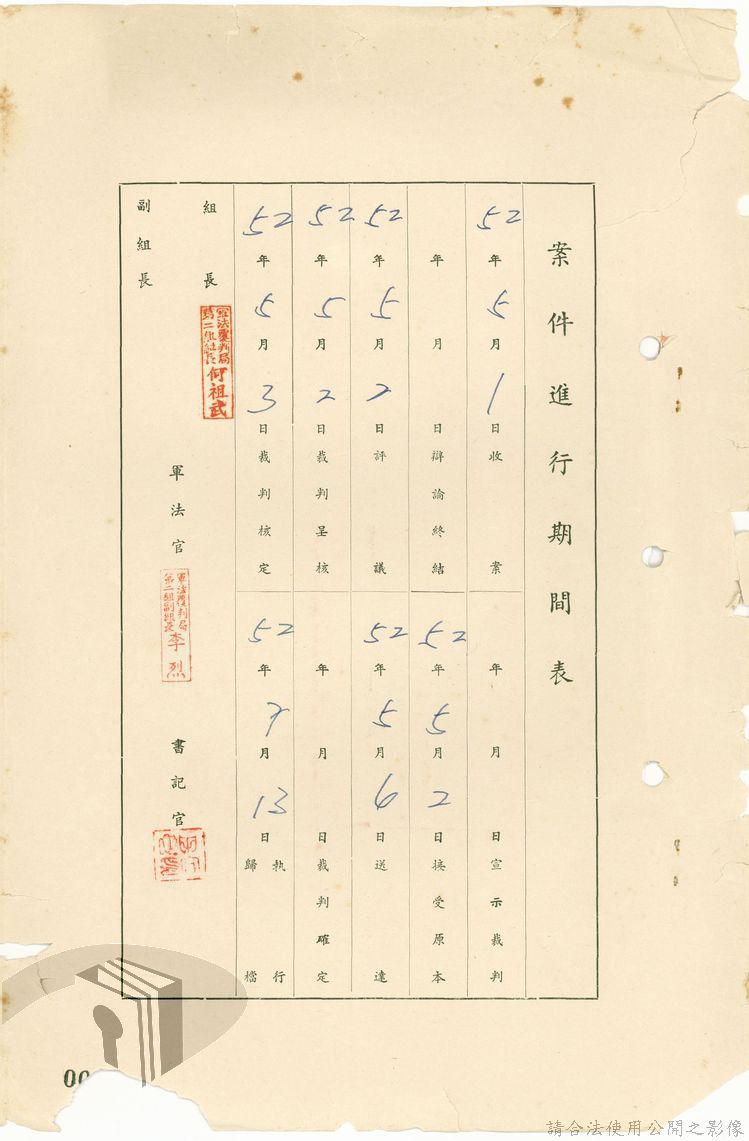 案件進行期間表
52年5月1日收案
年月日宣示裁判
年月日辯論終結
52年5月2日接受原本
52年5月2日評議
52年5月6日送達
52年5月2日裁判呈核
年月日裁判確定
52年5月3日裁判核定
52年7月13日執行歸檔
組長
軍法覆判局
第二組組長何祖武
副組長
軍法官
軍法覆判局
第二組副組長李烈
書記官
00
請合法使用公開之影像